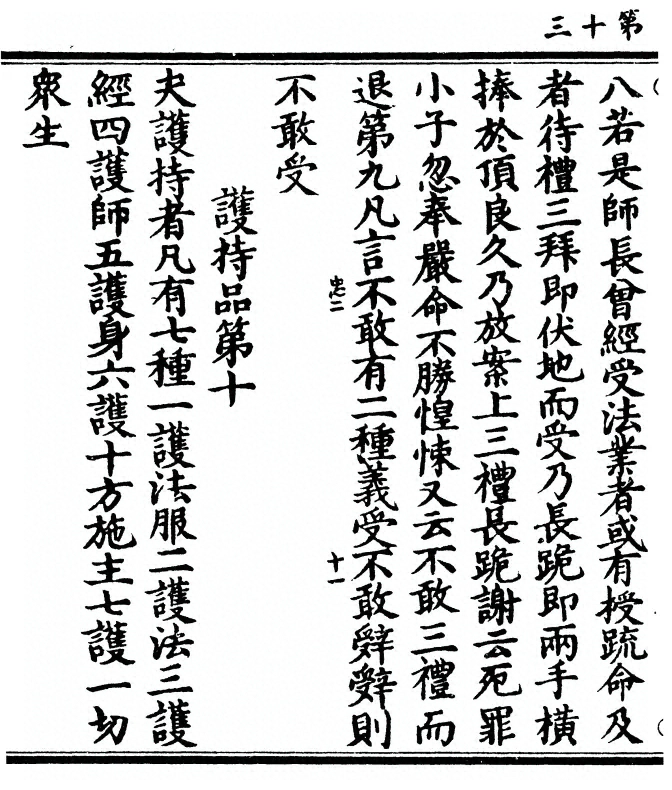 第十三
八若是師長曾經受法業者或有授䟽命及
者待禮三拜即伏地而受乃長跪即兩手橫
捧於頂良久乃放案上三禮長跪謝云死罪
小子忽奉嚴命不勝惶悚又云不敢三禮而
退第九凡言不敢有二種義受不敢辤辤則
忠二
十一
不敢受
護持品第十
夫護持者凡有七種一護法服二護法三護
經四護師五護身六護十方施主七護一切
衆生